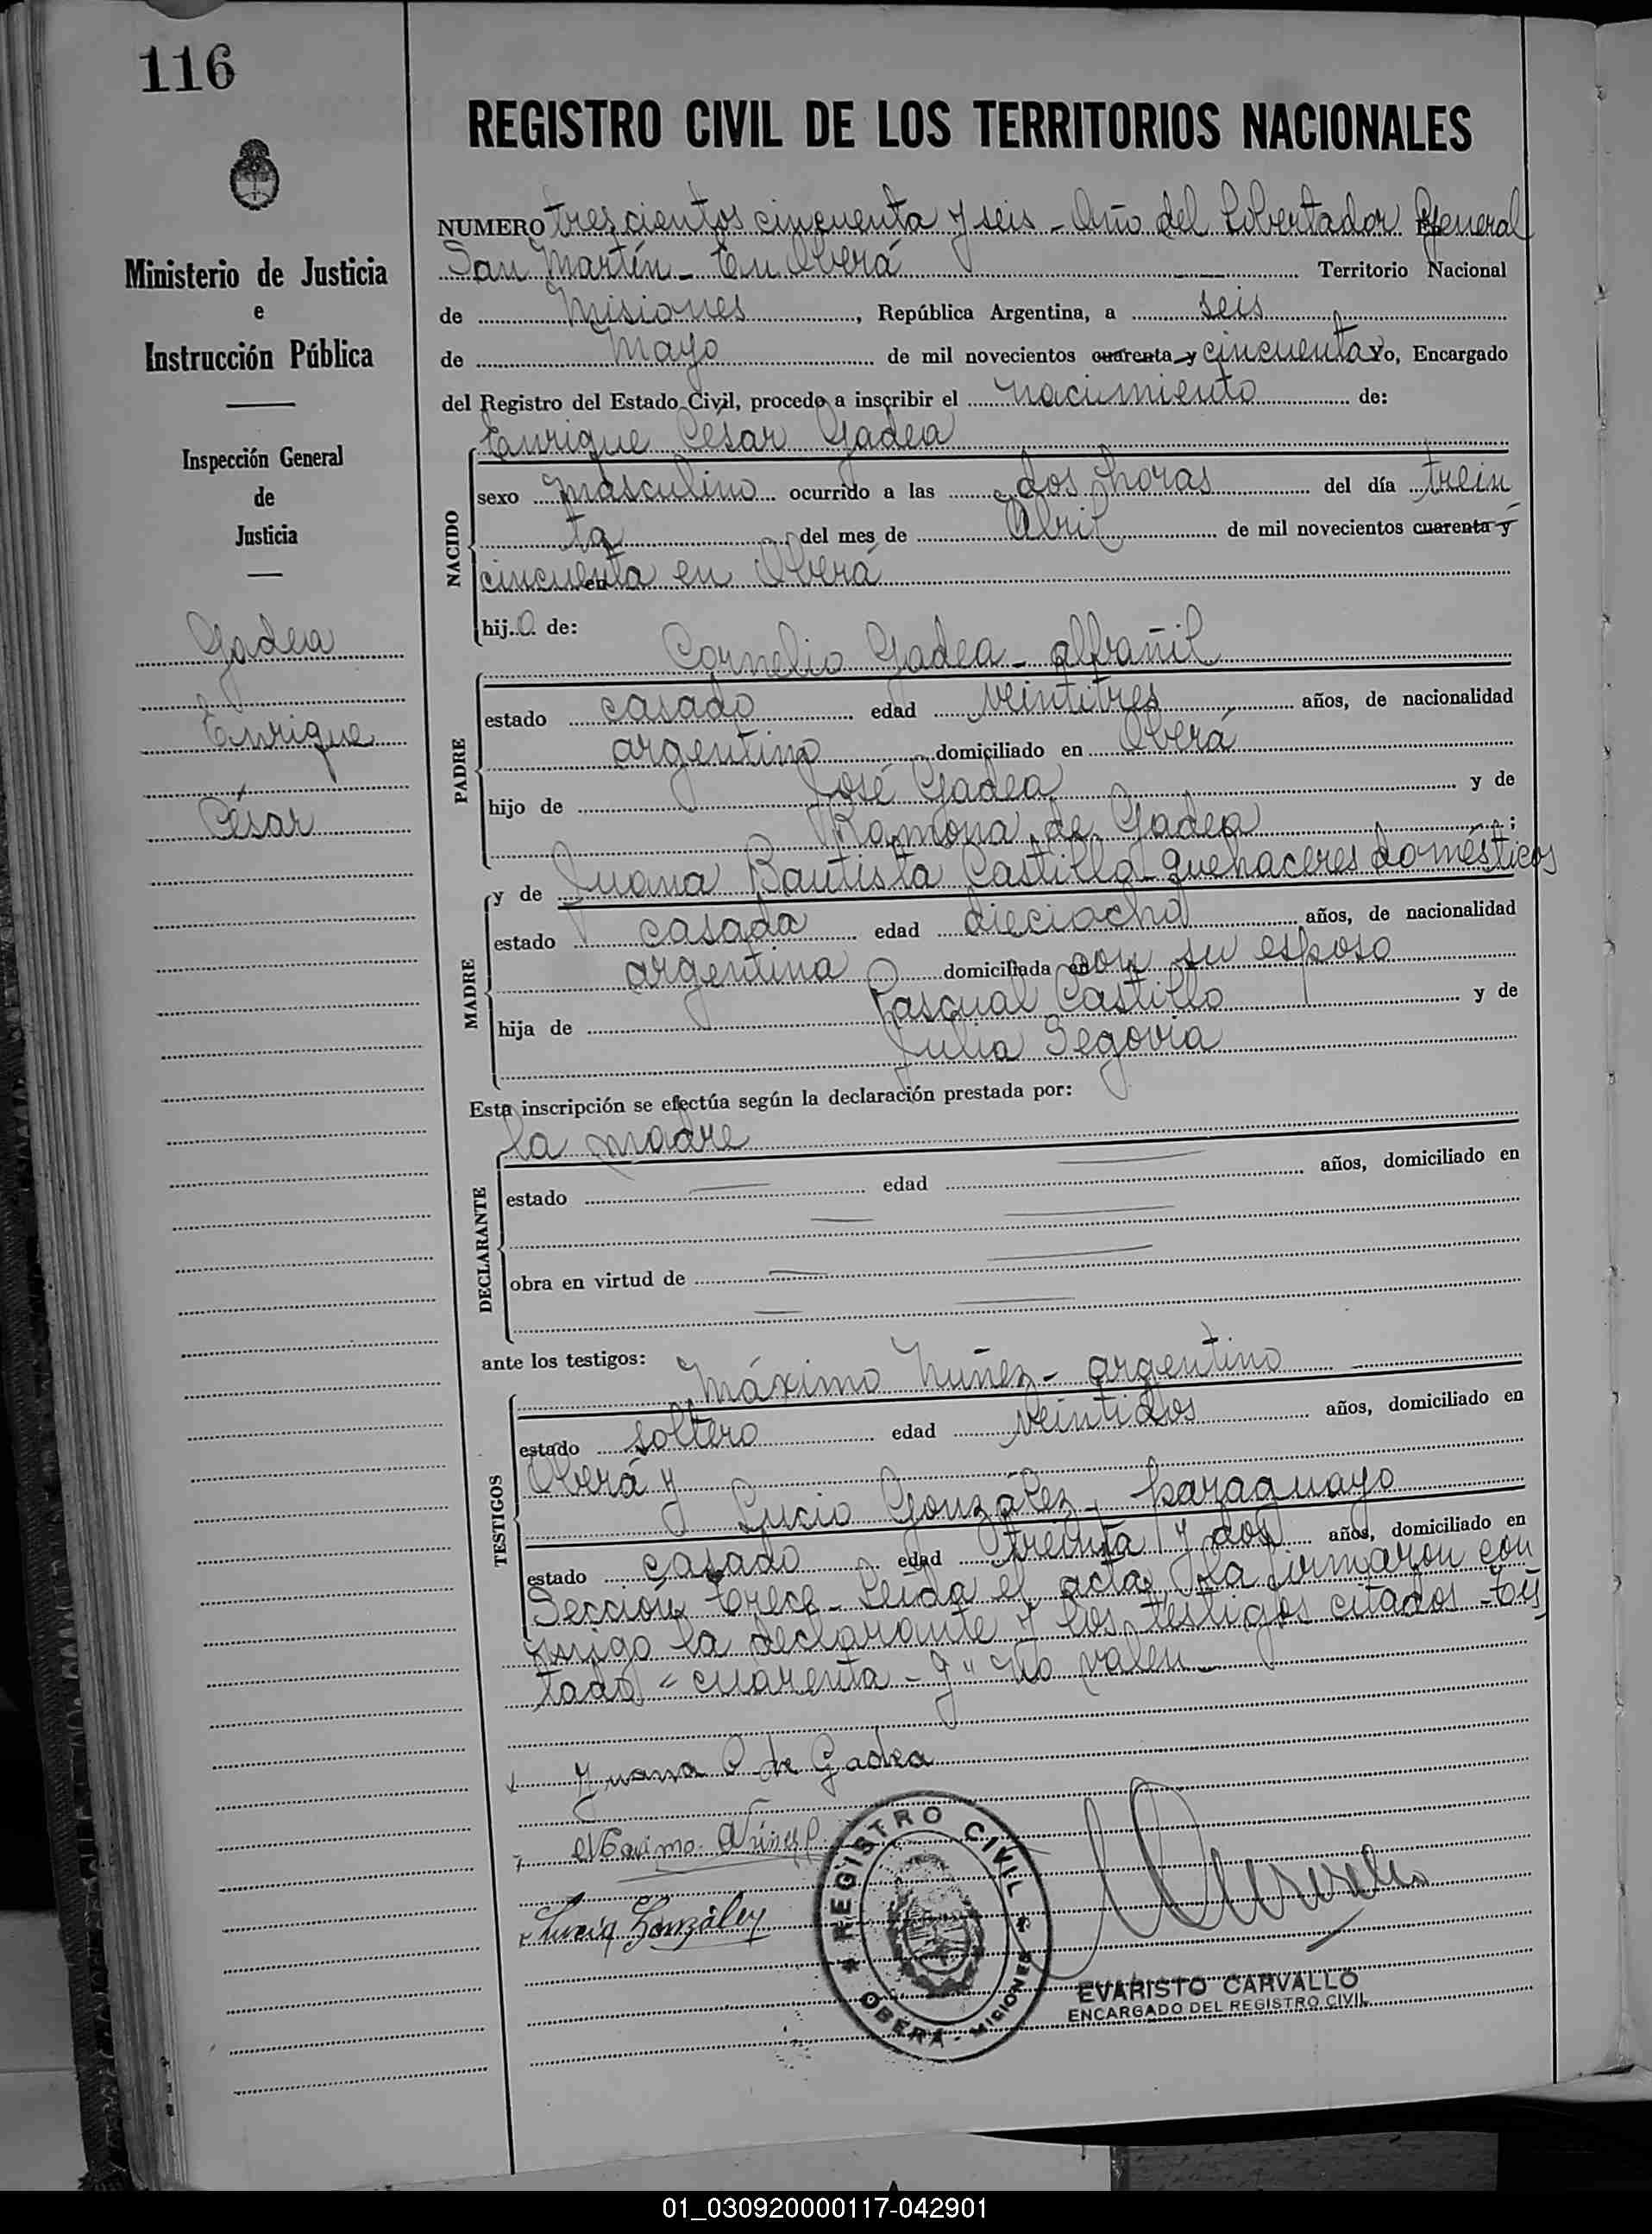 116
REGISTRO CIVIL DE LOS TERRITORIOS NACIONALES
Ministerio de Justicia
e
Instrucción Pública
Inspección General
de
Justicia
Gadea
Enrique
César
NUMERO trescientos cincuenta y seis - Año del Libertador General
San Martín - En Oberá Territorio Nacional
de Misiones, República Argentina, a seis
de Mayo de mil novecientos cuarenta y cincuenta Yo, Encargado
del Registro del Estado Civil, procedo a inscribir el nacimiento de:
Enrique César Gadea
NACIDO
sexo masculino ocurrido a las dos horas del día trein
ta del mes de Abril de mil novecientos cuarenta y
cincuenta en Oberá
hijo de:
Cornelio Gadea - albañil
PADRE
estado casado edad veintitres años, de nacionalidad
argentino domiciliado en Oberá
hijo de José Gadea y de
Ramona de Gadea ;
y de Juana Bautista Castillo quehaceres domésticos
MADRE
estado casada edad dieciocho años, de nacionalidad
argentina domiciliada con su esposo
hija de Pascual Castillo y de
Julia Segovia
Esta inscripción se efectúa según la declaración prestada por:
la madre
DECLARANTE
estado edad años, domiciliado en
obra en virtud de
ante los testigos:
Máximo Nuñez - argentino
TESTIGOS
estado soltero edad veintidos años, domiciliado en
Oberá y
Lucio González, paraguayo
estado casado edad treinta y dos años, domiciliado en
Sección trece - Leída el acta, la firmaron con
migo la declarante y los testigos citados - Tes
tado "cuarenta - y" No valen -
Juana C de Gadea
Maximo Núñez
Lucio González
REGISTRO CIVIL
OBERÁ - MISIONES
EVARISTO CARVALLO
ENCARGADO DEL REGISTRO CIVIL
01_030920000117-042901